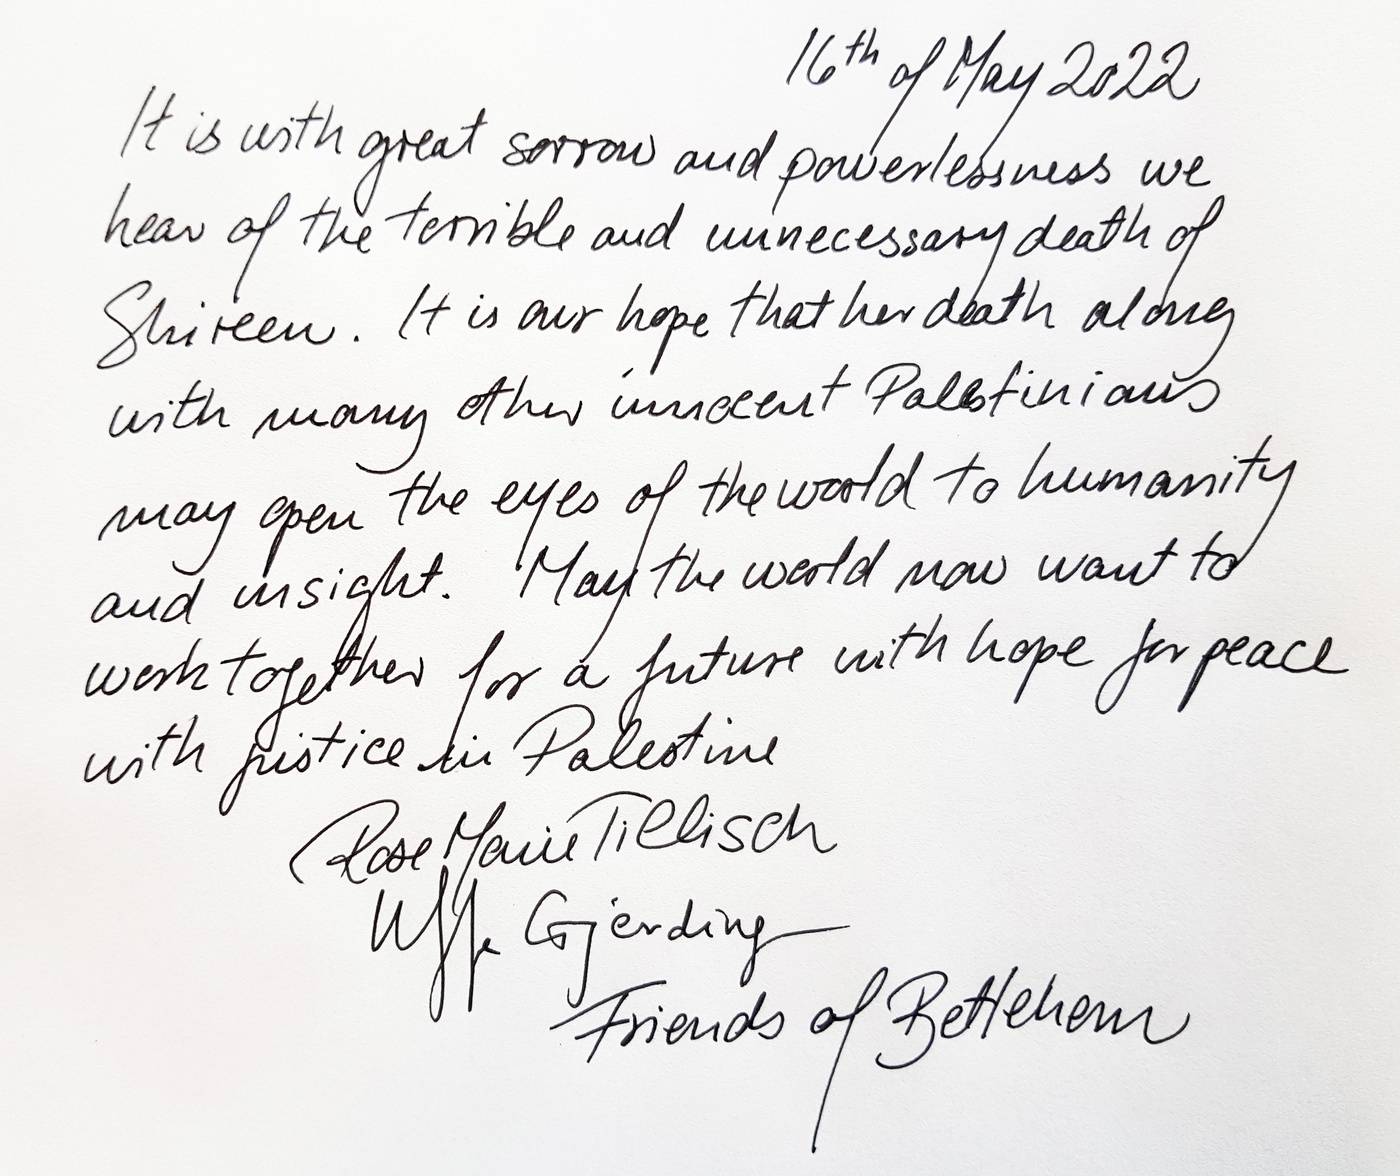 16th of May 2022
It is with great sorrow and powerlessness we
hear of the terrible and unnecessary death of
Shireen. It is our hope that her death along
with many other innocent Palestinians
may open the eyes of the world to humanity
and insight. May the world now want to
work together for a future with hope for peace
with justice in Palestine
Rose Marie Tillisch
Uffe Gjerding
Friends of Bethlehem